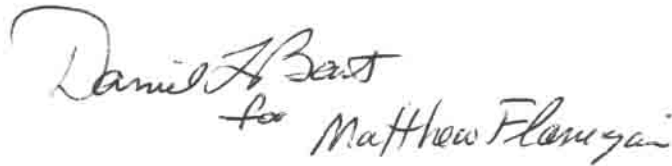 Daniel F Bast
for
Matthew Flanegan